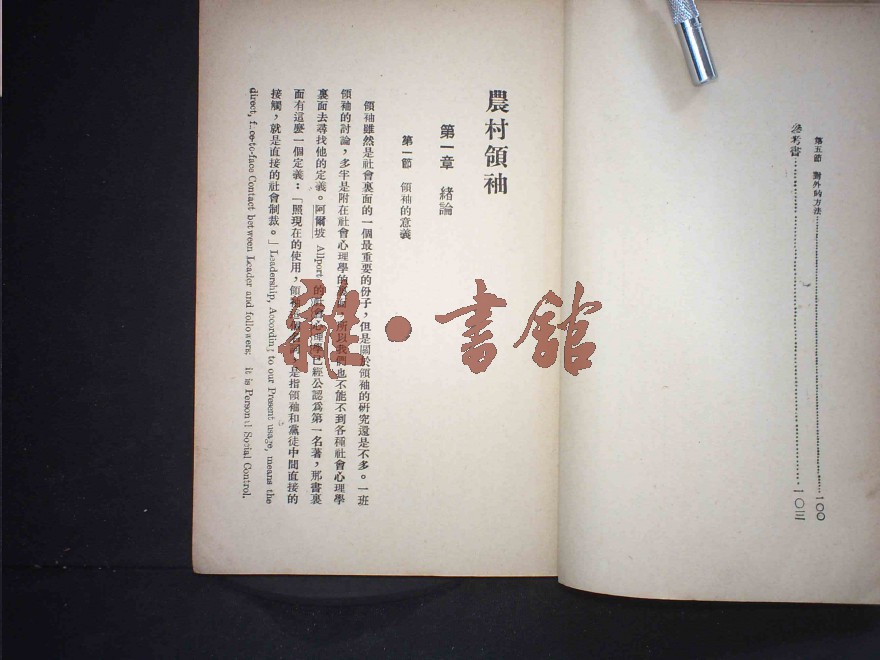 第五節 對外的方法……一〇〇
參考書……一〇三
農村領袖
第一章 緒論
第一節 領袖的意義
領袖雖然是社會裏面的一個最重要的份子，但是關於領袖的研究還是不多。一班
領袖的討論，多半是附在社會心理學的 所以我們也不能不到各種社會心理學
裏面去尋找他的定義。阿爾坡 Allport 的社會心理學已經公認爲第一名著，那書裏
面有這麽一個定義：「照現在的使用，領袖 是指領袖和黨徒中間直接的
接觸，就是直接的社會制裁。」Leadership, According to our Present usage, means the
direct, face-to-face Contact between Leader and followers; it is Personal Social Control.
龍•書館